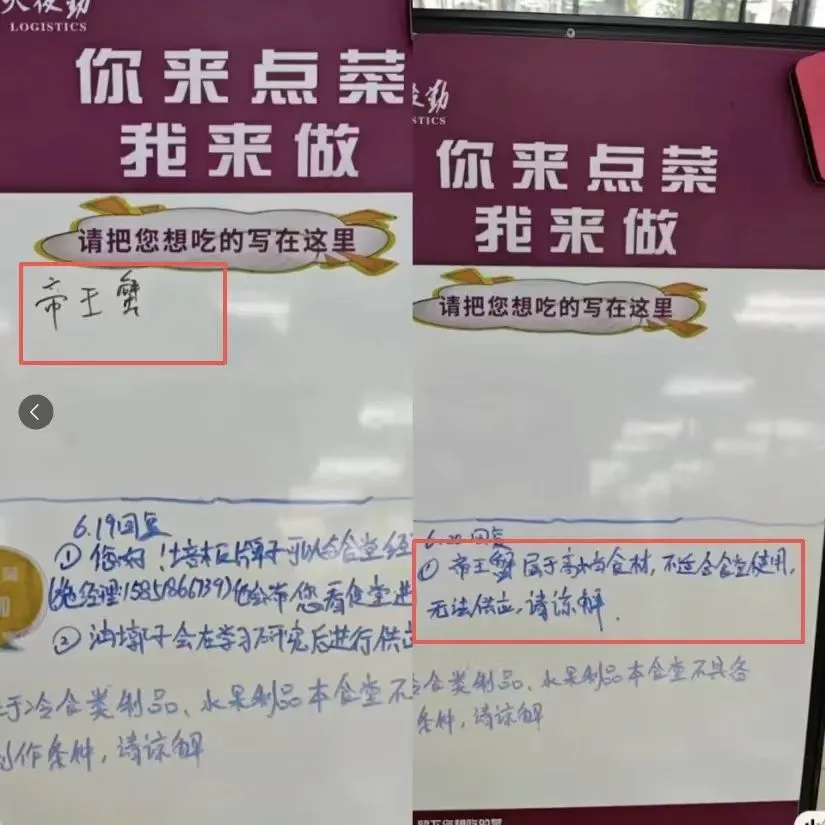 LOGISTICS
你来点菜
我来做
请把您想吃的写在这里
帝王蟹
6.19回复
①您好！牌子可以与食堂经
经理:15851866739)他会带您看食堂进
②油墩子会在学习研究后进行供应
于冷食类制品、水果制品本食堂不
作条件，请谅解
勤
STICS
你来点菜
我来做
请把您想吃的写在这里
回复
①帝王蟹属于高档食材，不适合食堂使用，
无法供应，请谅解.
冷食类制品、水果制品本食堂不具备
条件，请谅解